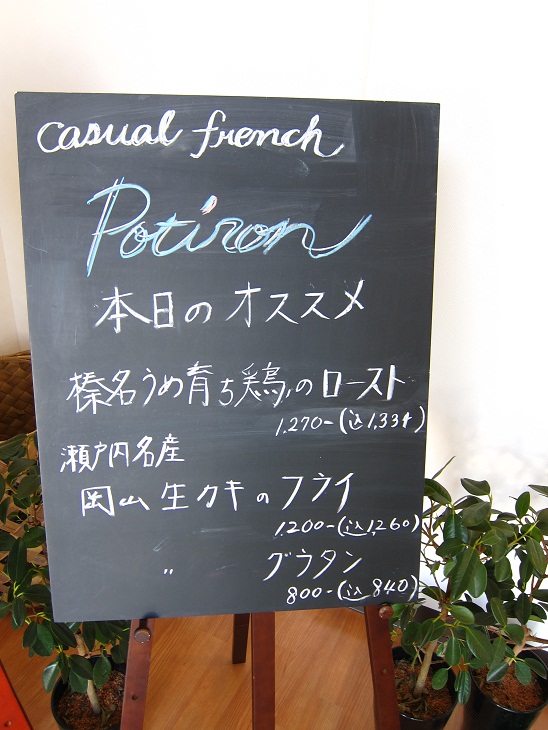 casual french
Potiron
本日のオススメ
榛名うめ育ち鶏のロースト
1,270-(込1,334)
瀬戸内名産
岡山生カキのフライ
1,200-(込1,260)
〃 グラタン
800-(込840)